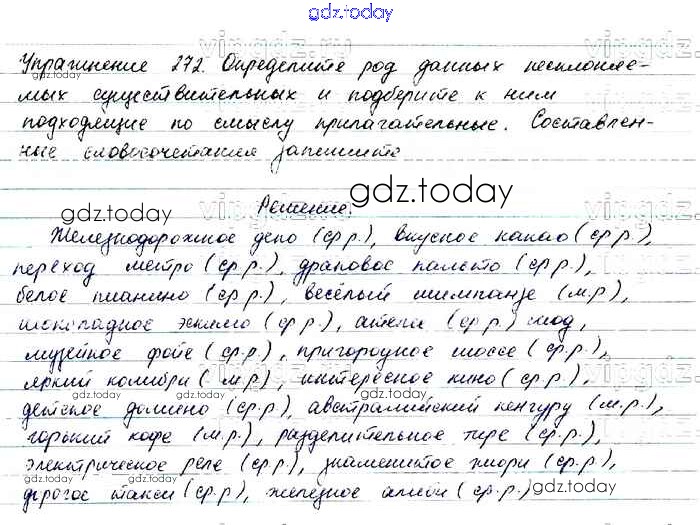 gdz.today
Упражнение 272. Определите род данных несклоняе-
gdz.today
мых существительных и подберите к ним
подходящие по смыслу прилагательные. Составлен-
ные словосочетания запишите
gdz.today
gdz.today
Решение.
Железнодорожное депо (ср р.), вкусное какао (ср р.),
переход метро (ср р.), драповое пальто (ср р.),
белое пианино (ср р.), весёлый шимпанзе (м.р.),
шоколадное эскимо (ср р.), ателье (ср р.) мод,
музейное фойе (ср.р.), пригородное шоссе (ср.р.),
яркий колибри (м.р.), интересное кино (ср.р.),
gdz.today
gdz.today
детское домино (ср.р.), австралийский кенгуру (м.р.),
горький кофе (м.р.), разделительное тире (ср.р.),
gdz.today
gdz.today
электрическое реле (ср.р.), знаменитое жюри (ср.р.),
дорогое такси (ср.р), железное алиби (ср.р.)
gdz.today
gdz.today